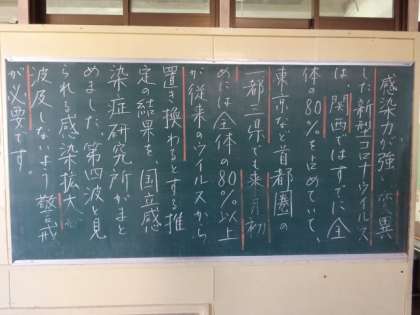 感染力が強い変異
した新型コロナウイルス
は、関西ではすでに全
体の80%を占めていて、
東京など首都圏の
一都三県でも来月初
めには全体の80%以上
が従来のウイルスから
置き換わるとする推
定の結果を、国立感
染症研究所がまと
めました。第四波と見
られる感染拡大が
波及しないよう警戒
が必要です。